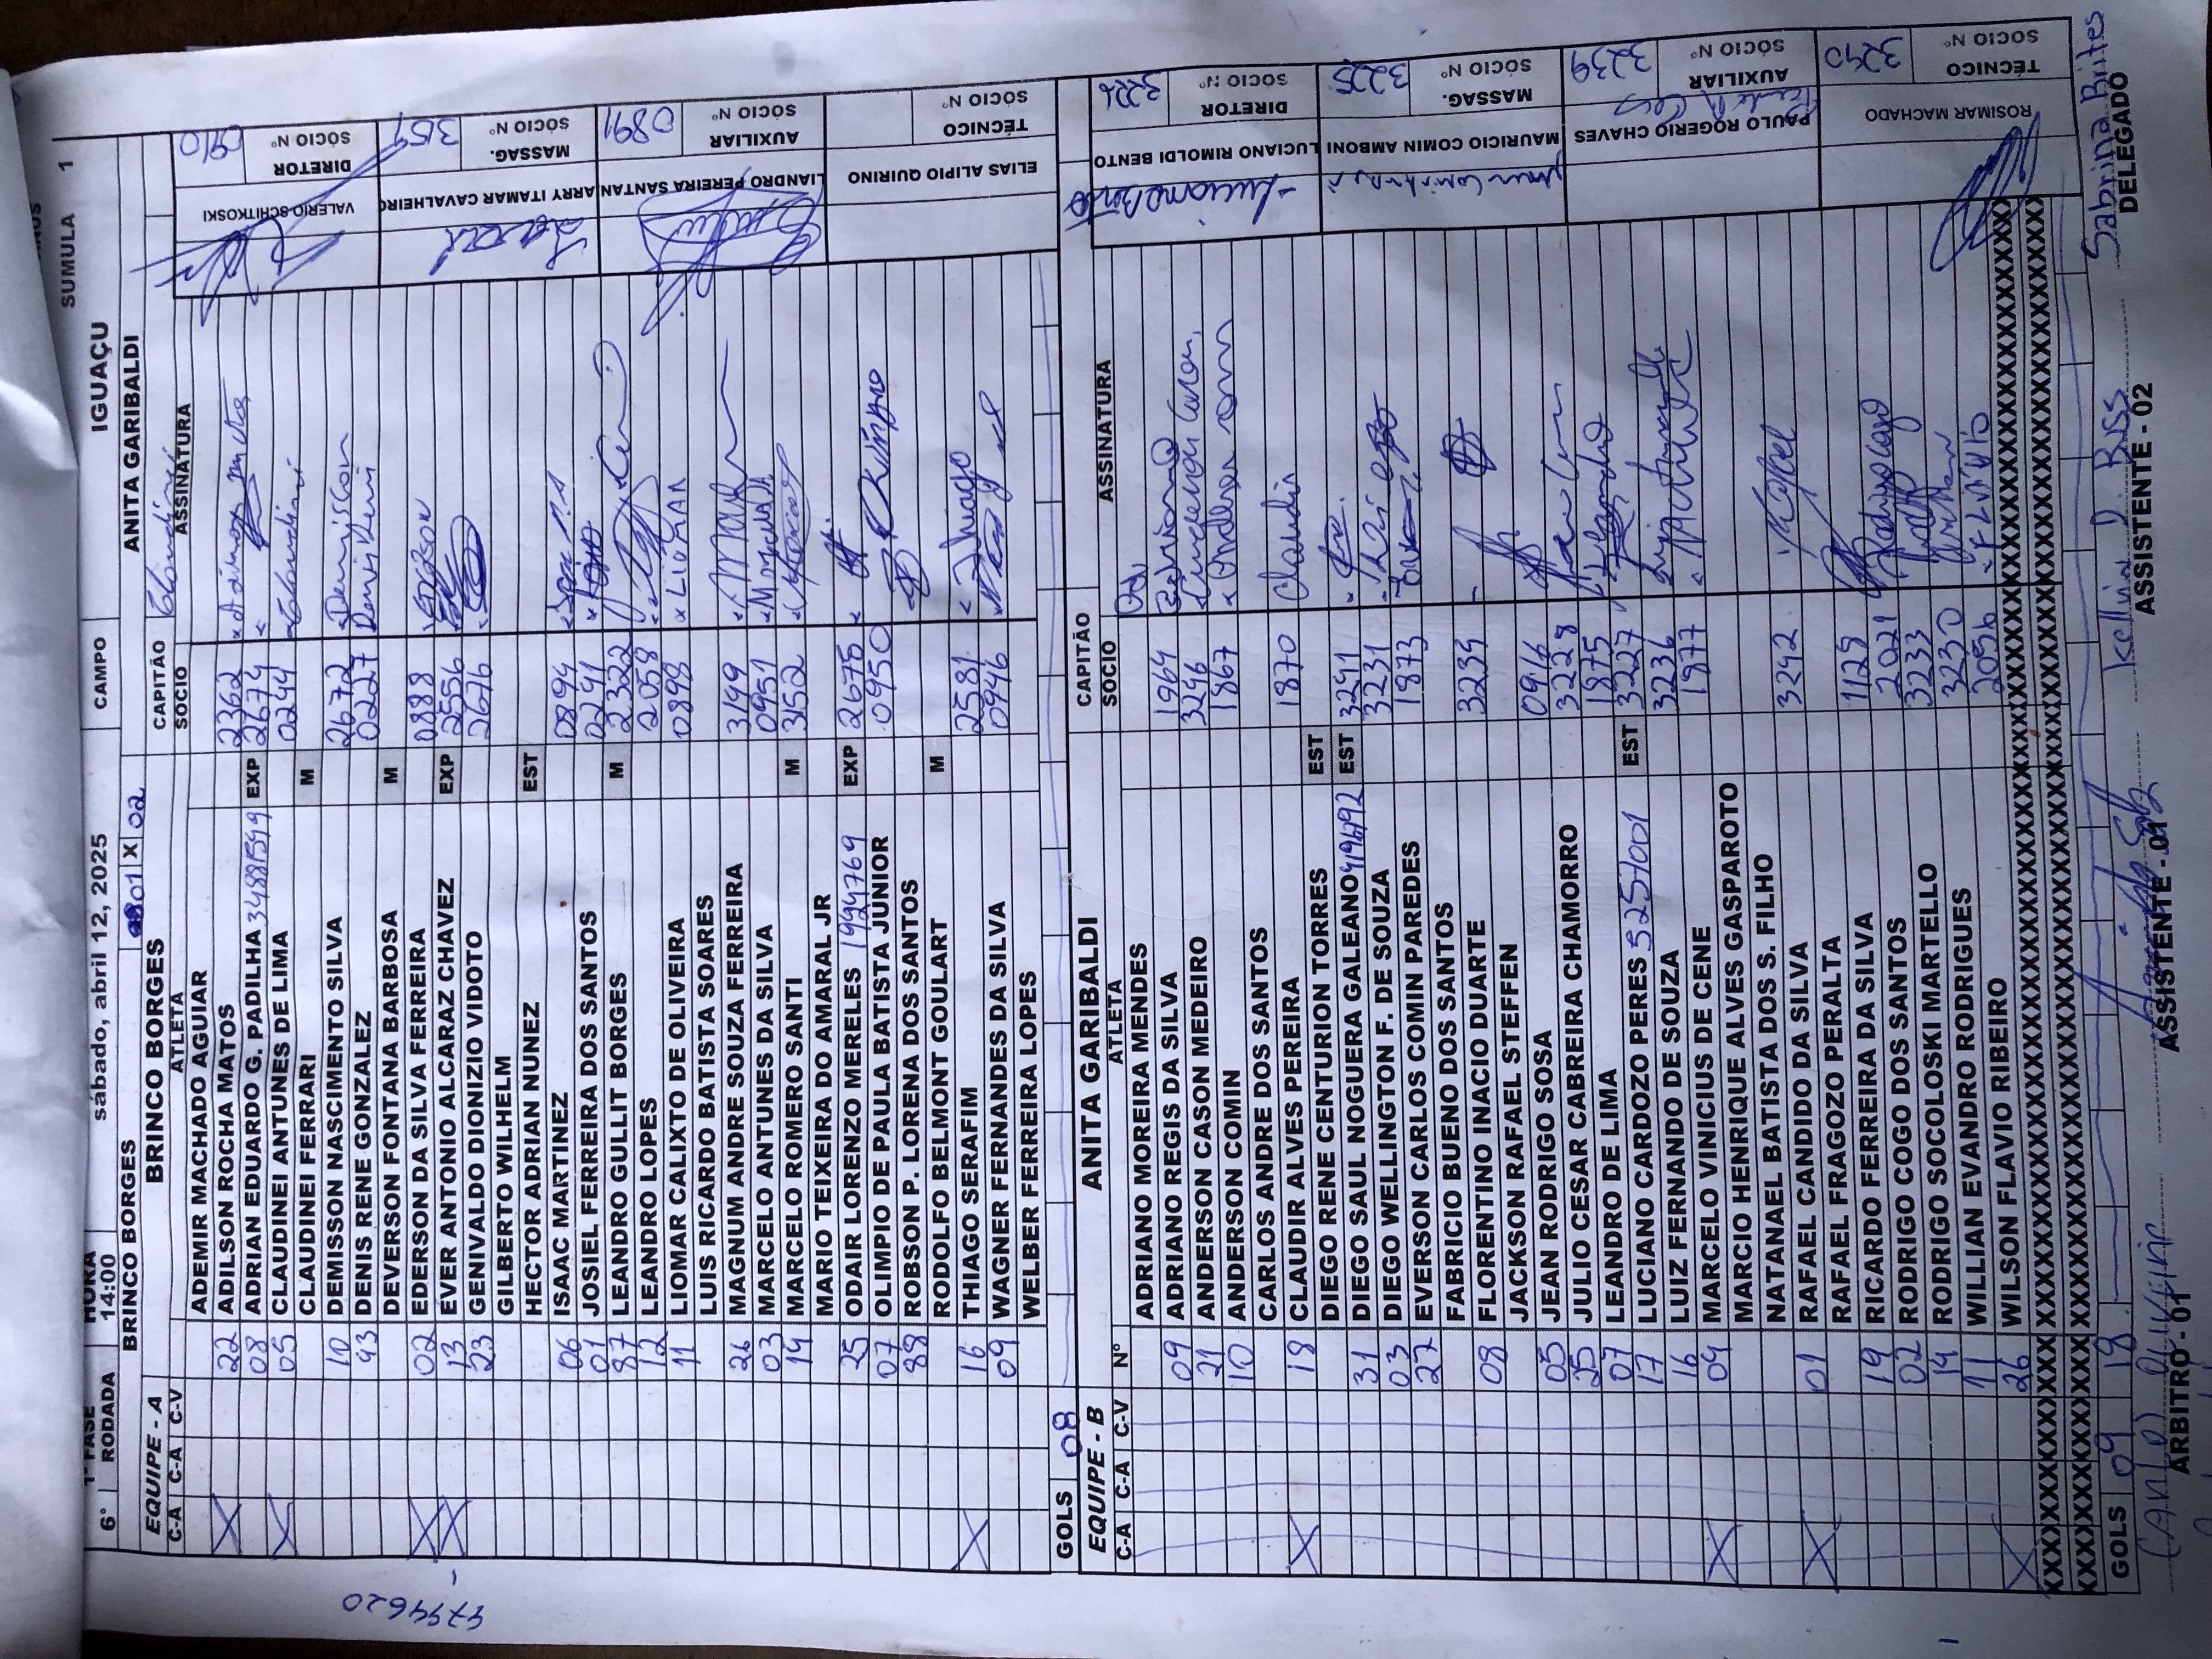 SUMULA 1
1ª FASE HORA CAMPO IGUAÇU
6° RODADA 14:00 sábado, abril 12, 2025
BRINCO BORGES 01 X 02 ANITA GARIBALDI
EQUIPE - A BRINCO BORGES CAPITÃO
C-A C-A C-V ATLETA SOCIO ASSINATURA
ADEMIR MACHADO AGUIAR
X 22 ADILSON ROCHA MATOS 2362
08 ADRIAN EDUARDO G. PADILHA EXP 2674
X 05 CLAUDINEI ANTUNES DE LIMA 0244 Claudinei
CLAUDINEI FERRARI M
10 DEMISSON NASCIMENTO SILVA 2672 Demisson
93 DENIS RENE GONZALEZ 0227 Denis
DEVERSON FONTANA BARBOSA M
X 02 EDERSON DA SILVA FERREIRA 0888
X 13 EVER ANTONIO ALCARAZ CHAVEZ EXP 2556
23 GENIVALDO DIONIZIO VIDOTO 2676
GILBERTO WILHELM
HECTOR ADRIAN NUNEZ EST
06 ISAAC MARTINEZ 0894
01 JOSIEL FERREIRA DOS SANTOS 0241
87 LEANDRO GULLIT BORGES M 2322
12 LEANDRO LOPES 2058
11 LIOMAR CALIXTO DE OLIVEIRA 0898 LIOMAR
LUIS RICARDO BATISTA SOARES
26 MAGNUM ANDRE SOUZA FERREIRA 3149
03 MARCELO ANTUNES DA SILVA 0951
14 MARCELO ROMERO SANTI M 3152
MARIO TEIXEIRA DO AMARAL JR
25 ODAIR LORENZO MERELES 1994769 EXP 2675
07 OLIMPIO DE PAULA BATISTA JUNIOR 0950
88 ROBSON P. LORENA DOS SANTOS
RODOLFO BELMONT GOULART M
X 16 THIAGO SERAFIM 2581 Thiago
09 WAGNER FERNANDES DA SILVA 0946
WELBER FERREIRA LOPES
GOLS 08
VALERIO SCHITKOSKI DIRETOR SÓCIO Nº 0910
ARRY ITAMAR CAVALHEIRO MASSAG. SÓCIO Nº 3159
LIANDRO PEREIRA SANTAN AUXILIAR SÓCIO Nº 0891
ELIAS ALIPIO QUIRINO TÉCNICO SÓCIO Nº
4794620
EQUIPE - B ANITA GARIBALDI CAPITÃO
C-A C-A C-V Nº ATLETA SOCIO ASSINATURA
ADRIANO MOREIRA MENDES
09 ADRIANO REGIS DA SILVA 1964
21 ANDERSON CASON MEDEIRO 3246
10 ANDERSON COMIN 1867
CARLOS ANDRE DOS SANTOS
X 18 CLAUDIR ALVES PEREIRA 1870 Claudir
DIEGO RENE CENTURION TORRES EST
31 DIEGO SAUL NOGUERA GALEANO EST 3241
03 DIEGO WELLINGTON F. DE SOUZA 3231
27 EVERSON CARLOS COMIN PAREDES 1873
FABRICIO BUENO DOS SANTOS
08 FLORENTINO INACIO DUARTE 3234
JACKSON RAFAEL STEFFEN
05 JEAN RODRIGO SOSA 0916
25 JULIO CESAR CABREIRA CHAMORRO 3228
07 LEANDRO DE LIMA 1875
17 LUCIANO CARDOZO PERES 5257001 EST 3227
16 LUIZ FERNANDO DE SOUZA 3236
X 04 MARCELO VINICIUS DE CENE 1877
MARCIO HENRIQUE ALVES GASPAROTO
NATANAEL BATISTA DOS S. FILHO
X 01 RAFAEL CANDIDO DA SILVA 3242 Rafael
RAFAEL FRAGOZO PERALTA
19 RICARDO FERREIRA DA SILVA 1129
02 RODRIGO COGO DOS SANTOS 2021
14 RODRIGO SOCOLOSKI MARTELLO 3233
11 WILLIAN EVANDRO RODRIGUES 3230
X 26 WILSON FLAVIO RIBEIRO 2056 FLAVIO
XXXXXXXXXXXXXXXXXXXXXXXXXXXXXXXXXXXXXXXX
XXXXXXXXXXXXXXXXXXXXXXXXXXXXXXXXXXXXXXXX
GOLS 09 18
LUCIANO RIMOLDI BENTO DIRETOR SÓCIO Nº 3226
MAURICIO COMIN AMBONI MASSAG. SÓCIO Nº 3225
PAULO ROGERIO CHAVES AUXILIAR SÓCIO Nº 3239
ROSIMAR MACHADO TÉCNICO SÓCIO Nº 3240
Sabrina Brites
ARBITRO - 01 ASSISTENTE - 01 ASSISTENTE - 02 DELEGADO